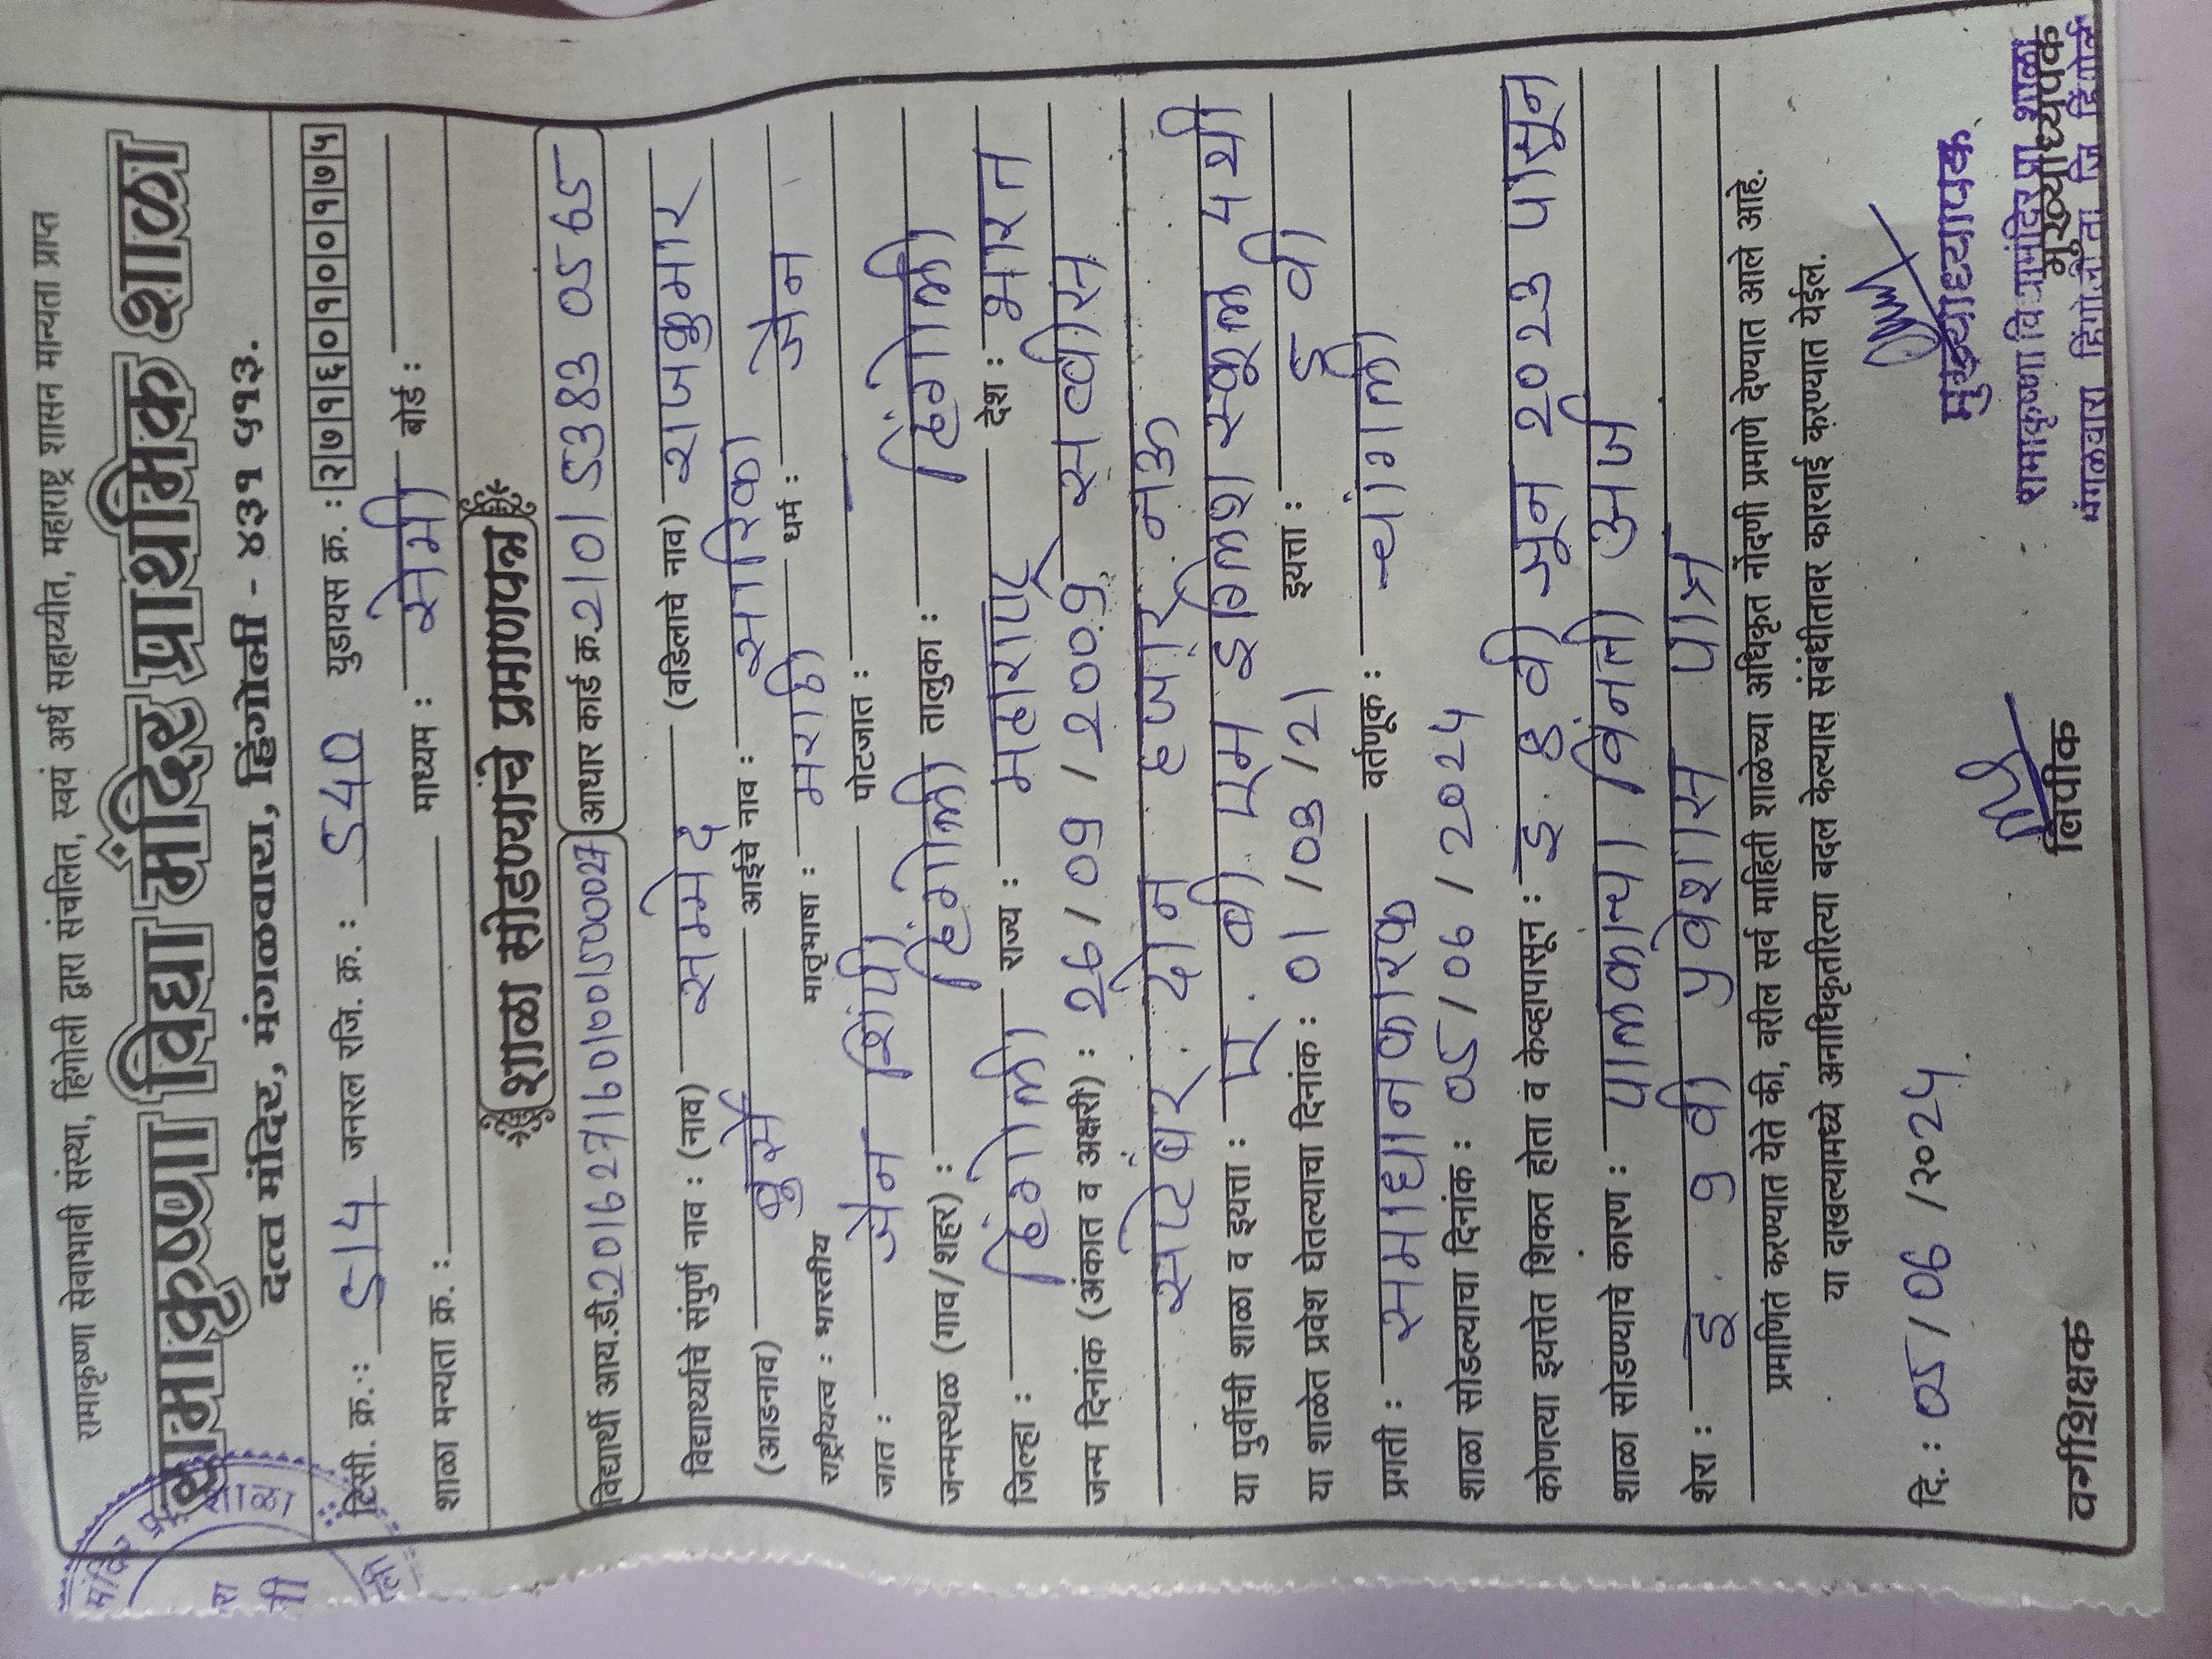 रामाकृष्णा सेवाभावी संस्था, हिंगोली द्वारा संचलित, स्वयं अर्थ सहाय्यीत, महाराष्ट्र शासन मान्यता प्राप्त
रामाकृष्णा विद्या मंदिर प्राथमिक शाळा
दत्त मंदिर, मंगळवारा, हिंगोली - ४३१ ५१३.
टिसी. क्र.: 514 जनरल रजि. क्र. : 540 युडायस क्र. : २७१६०१००१७५
शाळा मन्यता क्र. : माध्यम : सेमी बोर्ड :
शाळा सोडण्याचे प्रमाणपत्र
विद्यार्थी आय.डी. आधार कार्ड क्र. 2101 5383 0565
विद्यार्थ्याचे संपुर्ण नाव : (नाव) सम्मेद (वडिलाचे नाव) राजकुमार
(आडनाव) बुर्से आईचे नाव : सारिका
राष्ट्रीयत्व : भारतीय मातृभाषा : मराठी धर्म : जैन
जात : जैन शिंपी पोटजात :
जन्मस्थळ (गाव/शहर) : हिंगोली तालुका : हिंगोली
जिल्हा : हिंगोली राज्य : महाराष्ट्र देश : भारत
जन्म दिनांक (अंकात व अक्षरी) : 26 / 09 / 2009 सव्वीस
सप्टेंबर दोन हजार नऊ
या पुर्वीची शाळा व इयत्ता : ए. बी एम इंग्लिश स्कूल 4 थी
या शाळेत प्रवेश घेतल्याचा दिनांक : 01 / 03 / 21 इयत्ता : 5 वी
प्रगती : समाधानकारक वर्तणूक : चांगली
शाळा सोडल्याचा दिनांक : 05 / 06 / 2024
कोणत्या इयत्तेत शिकत होता व केव्हापासून : इ. 8 वी जून 2023 पासून
शाळा सोडण्याचे कारण : पालकांच्या विनंती अर्ज
शेरा : इ. 9 वी प्रवेशास पात्र
प्रमाणित करण्यात येते की, वरील सर्व माहिती शाळेच्या अधिकृत नोंदणी प्रमाणे देण्यात आले आहे.
या दाखल्यामध्ये अनाधिकृतरित्या बदल केल्यास संबंधीतावर कारवाई करण्यात येईल.
दि. : 05 / 06 / २०24
वर्गशिक्षक लिपीक मुख्याध्यपक
मुख्याध्यापक
रामाकृष्णा विद्यामंदिर प्रा शाळा
मंगळवारा हिंगोली ता जि हिंगोली